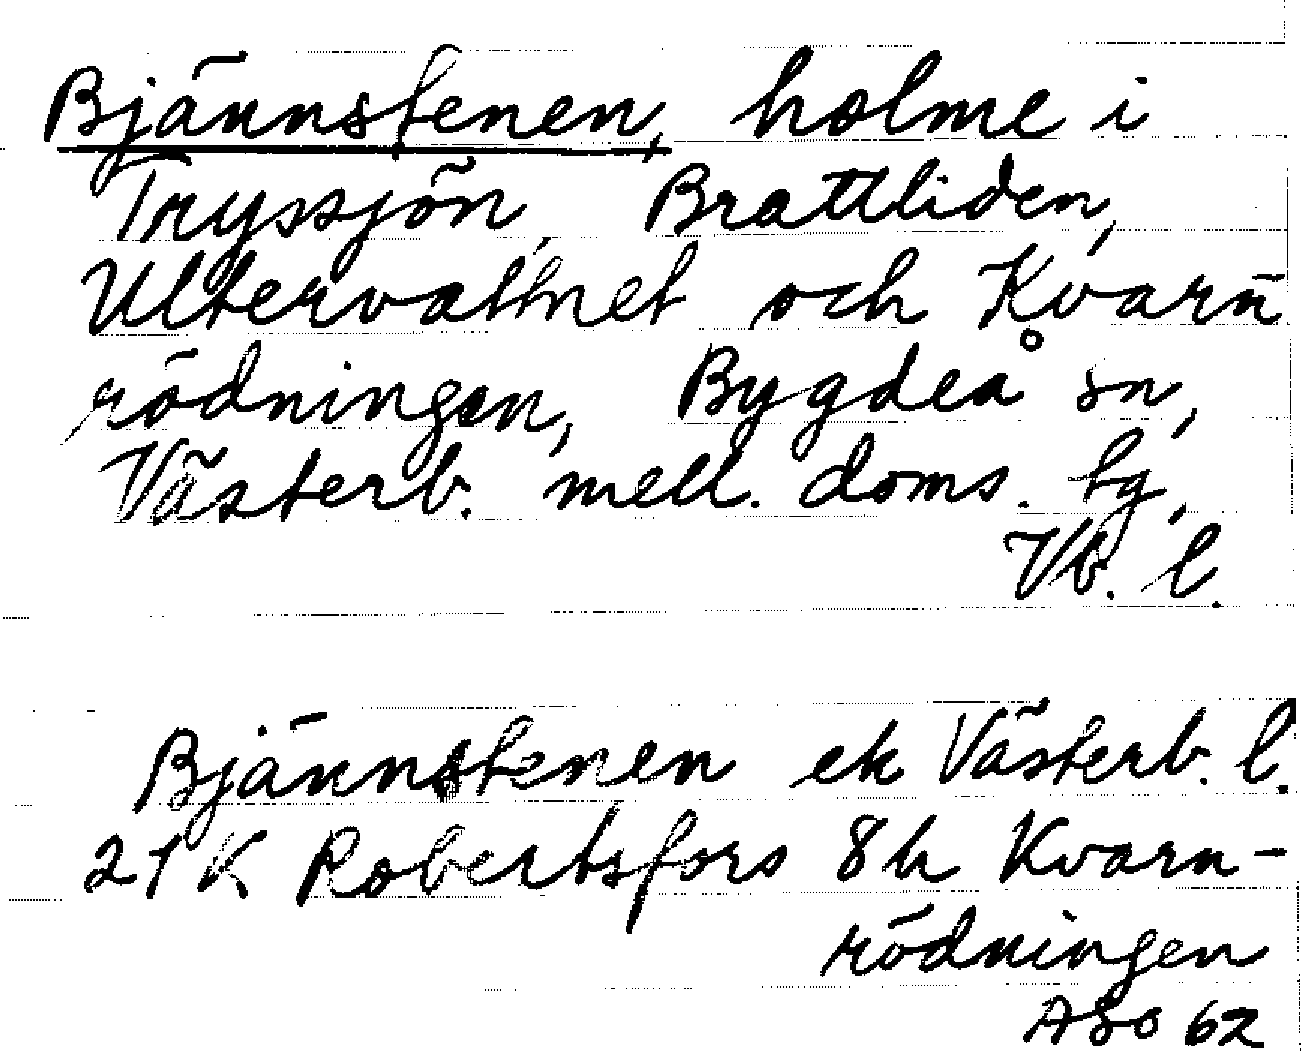 Bjännstenen, holme i
Tryssjön, Brattliden,
Ultervattnet och Kvarn-
rödningen, Bygdeå sn,
Västerb. mell. doms. tg,
Vb. l.
Bjännstenen ek Västerb. l.
21 K Robertsfors 8 h Kvarn-
rödningen
ASo 62